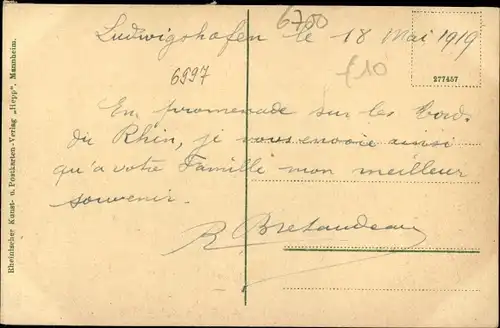 6700
Ludwigshafen le 18 Mai 1919
6997
£10
277457
En promenade sur les bords
du Rhin, je vous envoie ainsi
qu'a votre Famille mon meilleur
souvenir.
R Bretaudeau
Rheinischer Kunst- u. Postkarten-Verlag „Hepp", Mannheim.